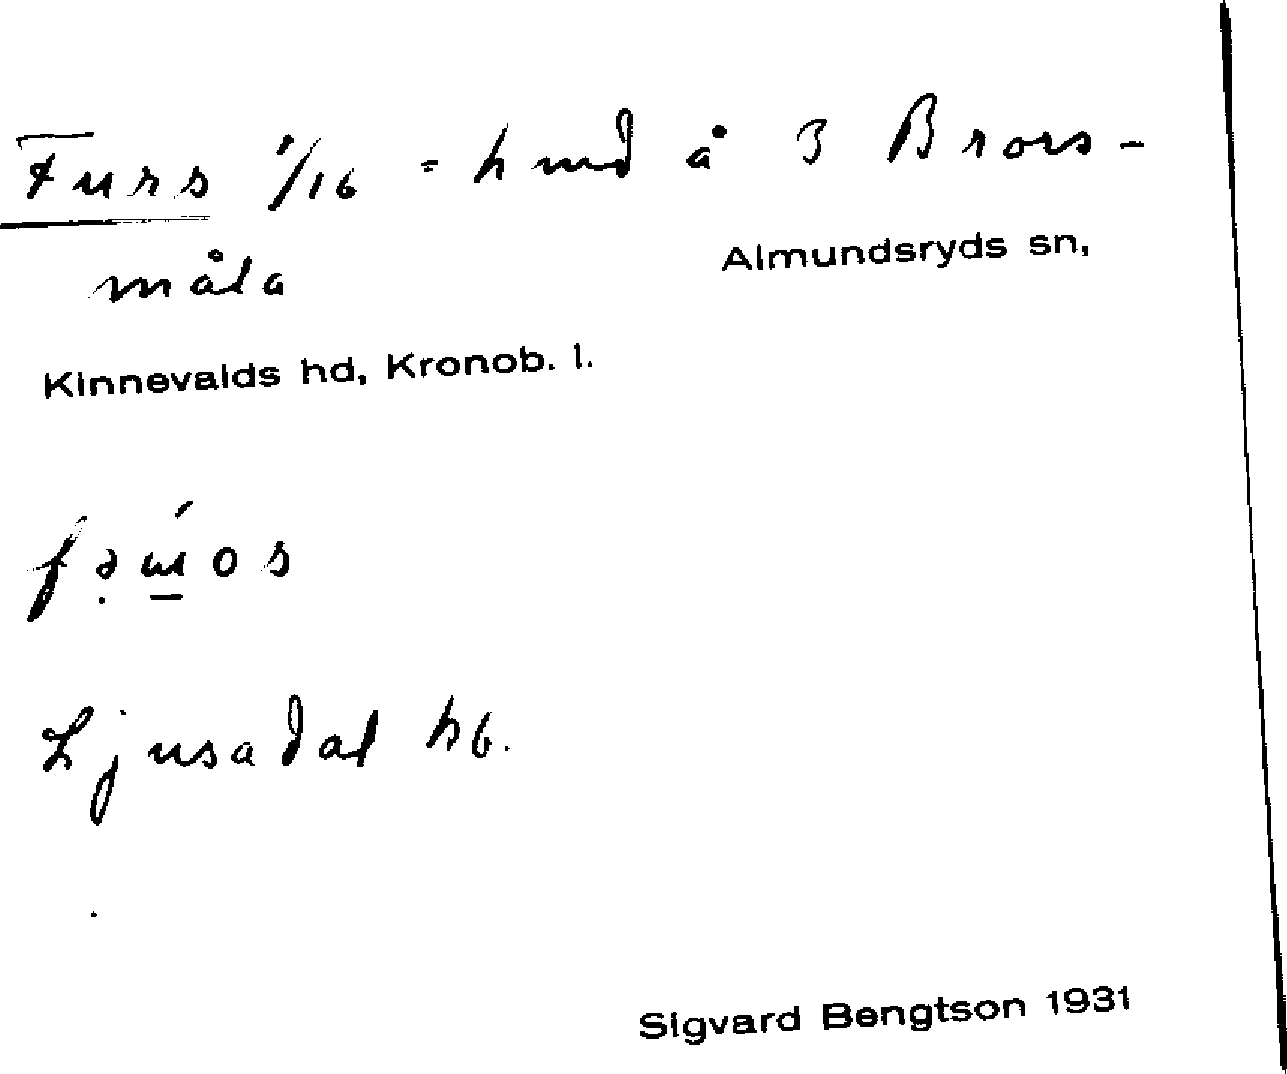 Furs 1/16 = hmd å 3 Brors-
måla
Almundsryds sn,
Kinnevalds hd, Kronob. l.
Ljusadal hb.
Sigvard Bengtson 1931